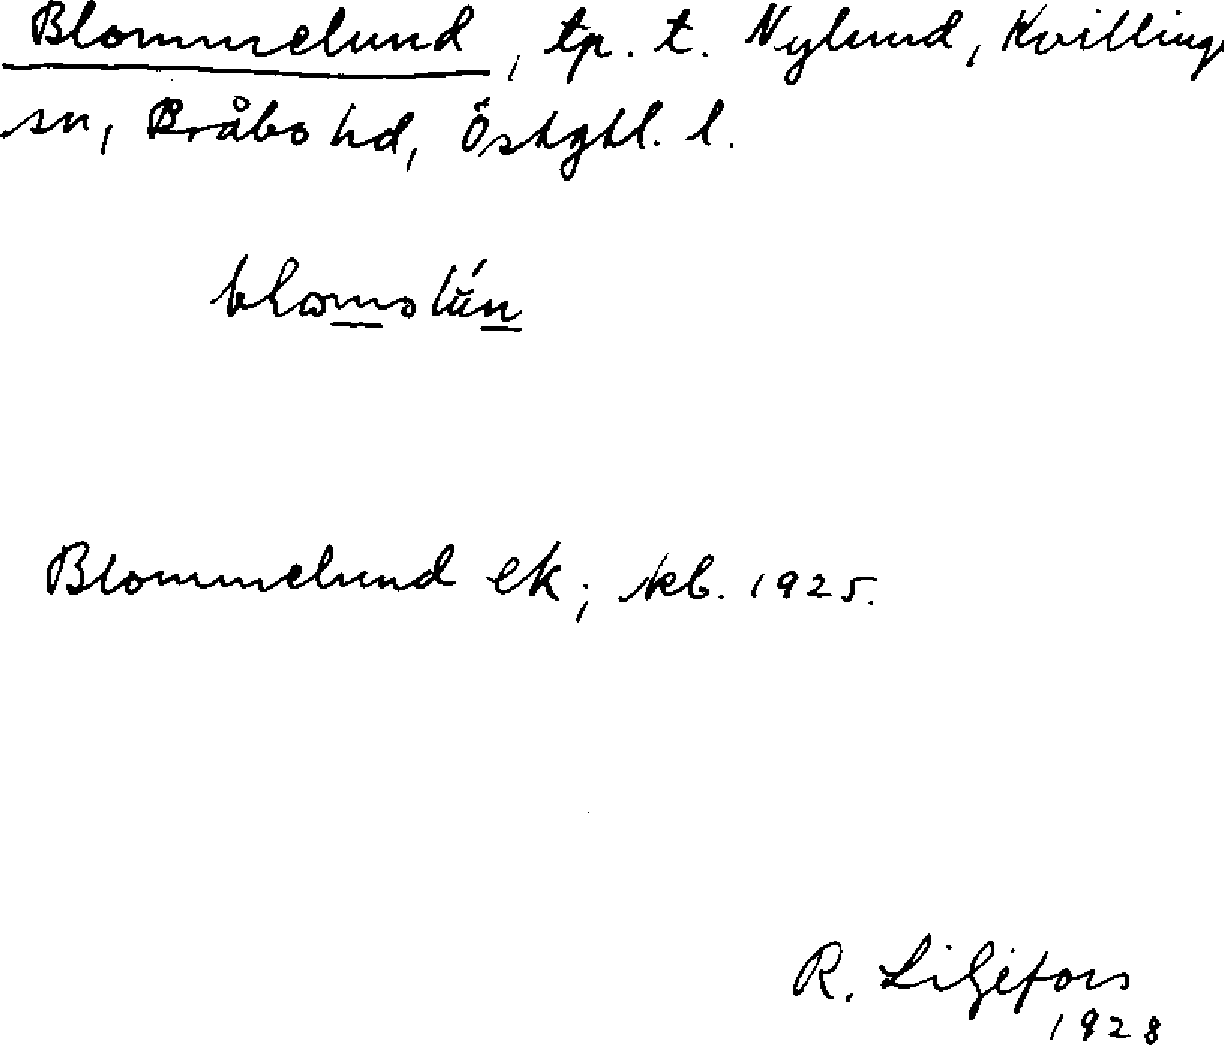 Blommelund, tp. t. Nylund, Kvillinge
sn, Bråbo hd, Östgtl. l.
Blommelund ek; kb. 1925.
R. Liljefors
1928